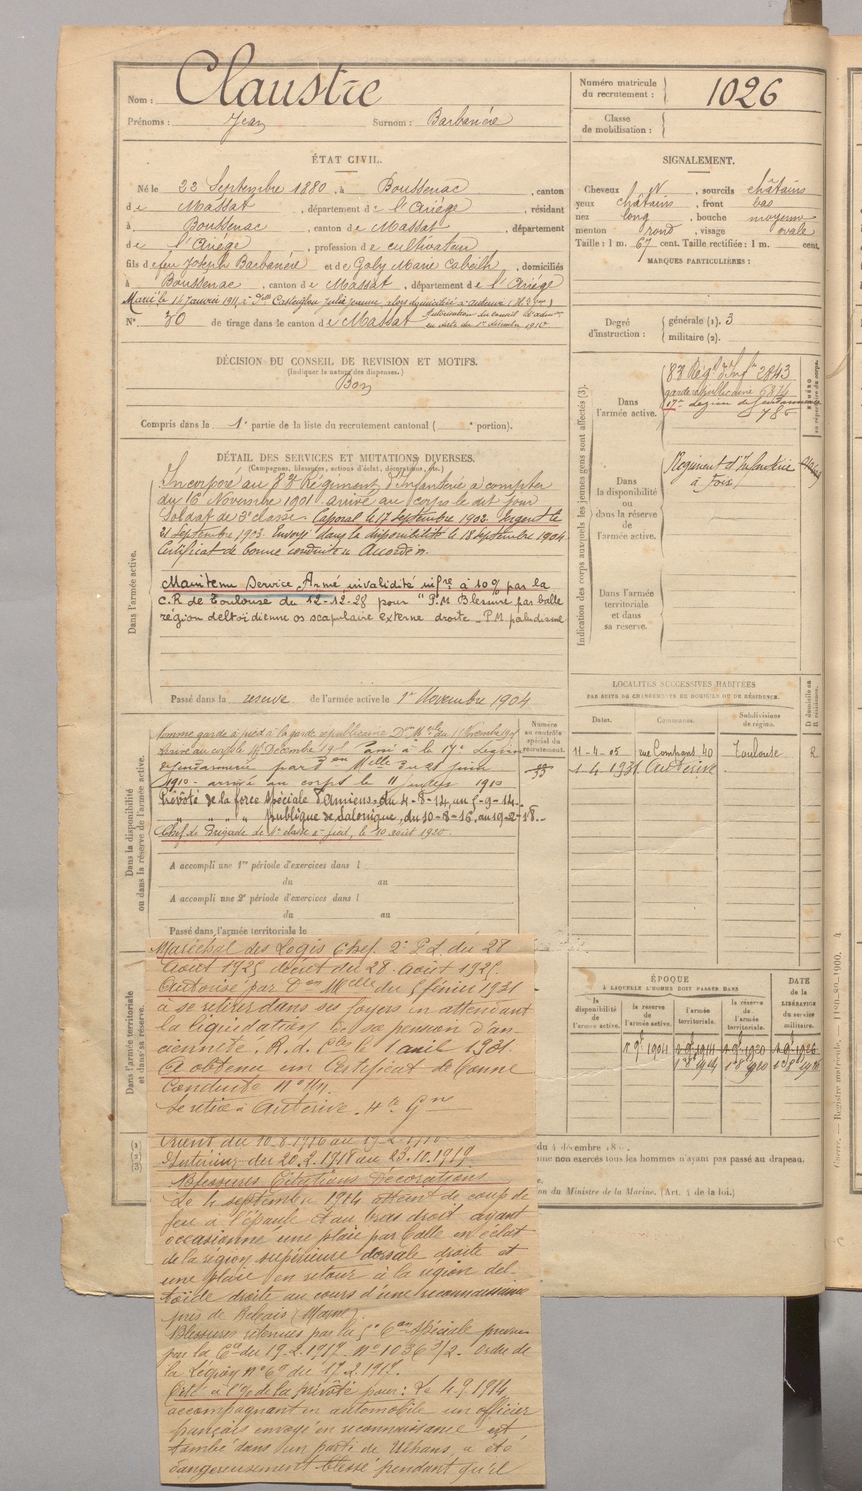 Nom : Claustre
Prénoms : Jean Surnom : Barbanère
Numéro matricule du recrutement : 1026
Classe de mobilisation :
ÉTAT CIVIL.
Né le 22 Septembre 1880, à Boussenac, canton
de Massat, département de l'Ariége, résidant
à Boussenac, canton de Massat, département
de l'Ariége, profession de cultivateur
fils de feu Joseph Barbanère et de Galy Marie Cabeilh, domiciliés
à Boussenac, canton de Massat, département de l'Ariége
Marié le 16 Janvier 1911 à Dlle
N° 30 de tirage dans le canton de Massat
SIGNALEMENT.
Cheveux N, sourcils châtains
yeux châtains, front bas
nez long, bouche moyenne
menton rond, visage ovale
Taille : 1 m. 67 cent. Taille rectifiée : 1 m. cent.
MARQUES PARTICULIÈRES :
Degré d'instruction : générale (1). 3
militaire (2).
DÉCISION DU CONSEIL DE REVISION ET MOTIFS.
(Indiquer la nature des dispenses.)
Bon
Compris dans la 1e partie de la liste du recrutement cantonal ( portion).
Indication des corps auxquels les jeunes gens sont affectés (3).
Dans l'armée active.
83 Régt d'Infie 2843
garde républicaine 6374
17e Légion de Gendarmerie
785
Dans la disponibilité ou dans la réserve de l'armée active.
Régiment d'Infanterie
à Foix
Dans l'armée territoriale et dans sa réserve.
DÉTAIL DES SERVICES ET MUTATIONS DIVERSES.
(Campagnes, blessures, actions d'éclat, décorations, etc.)
Dans l'armée active.
Incorporé au 83 Régiment d'Infanterie à compter
du 16 Novembre 1901 arrivé au corps le dit jour
Soldat de 2e classe. Caporal le 17 septembre 1902. Sergent le
21 septembre 1903. Envoyé dans la disponibilité le 18 septembre 1904.
Certificat de bonne conduite Accordé.
Maintenu Service Armé invalidité infre à 10% par la
C.R de Toulouse du 12-12-28 pour "P.M Blessure par balle
région deltoïdienne os scapulaire externe droite - P.M paludisme
Passé dans la reserve de l'armée active le 1er Novembre 1904
Dans la disponibilité ou dans la réserve de l'armée active.
Numéro au contrôle spécial du recrutement.
Nommé garde à pied à la garde républicaine Don Mlle du
arrivé au corps le Décembre Passé à la 17e Légion
de gendarmerie par Don Mlle du 21 juin
1910 - arrivé au corps le 11 1910
Prévôté de la force spéciale d'Amiens, du 4-8-14, au 5-9-14.
" " " " publique de Salonique, du 10-8-16, au 19-2-18.
Chef de Brigade de 4e classe à pied, le 10 août 1920.
A accompli une 1re période d'exercices dans l
du au
A accompli une 2e période d'exercices dans l
du au
Passé dans l'armée territoriale le
LOCALITÉS SUCCESSIVES HABITÉES
PAR SUITE DE CHANGEMENTS DE DOMICILE OU DE RÉSIDENCE.
Dates. Communes. Subdivisions de région. D domicile ou R résidence.
11-4-05 rue Compans 40 Toulouse R
1-4 1931 Auterive
ÉPOQUE
À LAQUELLE L'HOMME DOIT PASSER DANS
la disponibilité de l'armée active.
la réserve de l'armée active.
l'armée territoriale.
la réserve de l'armée territoriale.
DATE de la LIBÉRATION du service militaire.
Dans l'armée territoriale et dans sa réserve.
Maréchal des Logis Chef. 2e P.L. du 28
Août 1925 décret du 28 août 1925.
Autorisé par Don Mlle du 5 février 1931
à se retirer dans ses foyers en attendant
la liquidation de sa pension d'an-
cienneté. R. d. Cles le 1 avril 1931.
A obtenu un Certificat de bonne
Conduite
Se retire à Auterive. Hte Gne
Orient du 10.8.1916 au 19.2.1918
Intérieur du 20.2.1918 au 23.10.1919
Blessures Citations Décorations
Le 4 septembre 1914 atteint de coup de
feu à l'épaule et au bras droit ayant
occasionné une plaie par balle en séton
de la région supérieure dorsale droite et
une plaie en retour à la région del-
toïde droite au cours d'une reconnaissance
près de Rebais (Marne).
Blessures retenues par la 5e Con spéciale
par la Con du 19.2.1917. No 1036 3/2. Ordre de
la Légion no 60 du 17.2.1917.
Cité à l'O/ de la prévôté pour : Le 4.9.1914
accompagnant en automobile un officier
français envoyé en reconnaissance est
tombé dans un parti de Uhlans, a été
dangereusement blessé pendant qu'il
du 4 décembre
non exercés tous les hommes n'ayant pas passé au drapeau.
du Ministre de la Marine. (Art. 4 de la loi.)